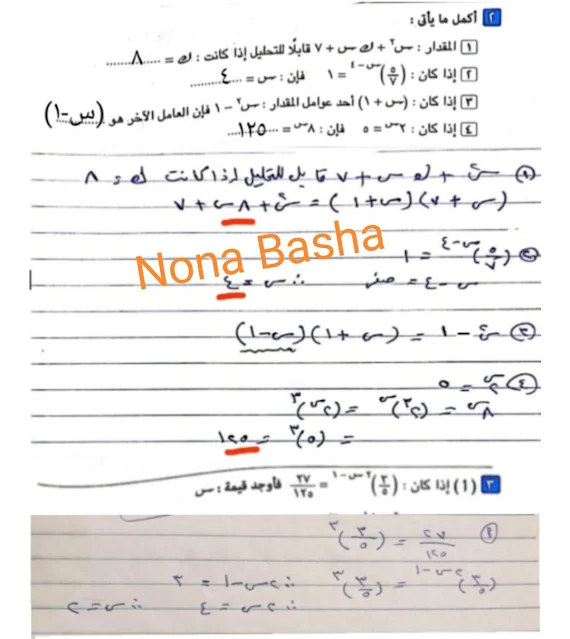 ٢ أكمل ما يأتى :
١ المقدار : س٢ + ك س + ٧ قابلًا للتحليل إذا كانت : ك = ...٨...
٢ إذا كان : (٥/٧)س-٤ = ١ فإن : س = ...٤...
٣ إذا كان : (س + ١) أحد عوامل المقدار : س٢ - ١ فإن العامل الآخر هو (س-١)
٤ إذا كان : ٢س = ٥ فإن : ٨س = ...١٢٥...
١ س٢ + ك س + ٧ قابل للتحليل إذا كانت ك = ٨
(س + ٧)(س + ١) = س٢ + ٨س + ٧
٢ (٥/٧)س-٤ = ١
س - ٤ = صفر ∴ س = ٤
Nona Basha
٣ س٢ - ١ = (س + ١)(س-١)
٤ ٢س = ٥
٨س = (٢٣)س = (٢س)٣
= (٥)٣ = ١٢٥
٣ (١) إذا كان : (٣/٥)٢س-١ = ٢٧/١٢٥ فأوجد قيمة : س
٢٧/١٢٥ = (٣/٥)٣
(٣/٥)٢س-١ = (٣/٥)٣ ∴ ٢س-١ = ٣
∴ ٢س = ٤ ∴ س = ٢